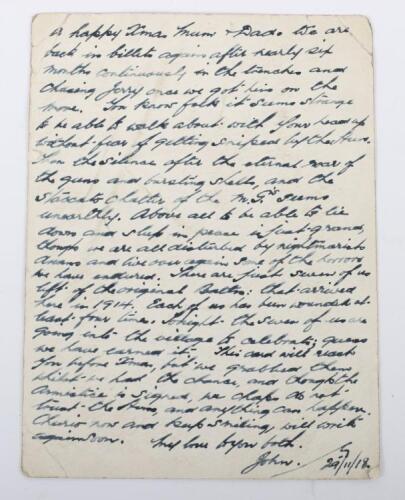 A happy Xmas Mum & Dad. We are
back in billets again after nearly six
months continuously in the trenches and
chasing Jerry once we got him on the
move. You know folks it seems strange
to be able to walk about with your head up
without fear of getting sniped by the Hun.
Then the silence after the eternal roar of
the guns and bursting shells, and the
staccato chatter of the M.Gns seems
unearthly. Above all to be able to lie
down and sleep in peace is just grand,
though we are all disturbed by nightmarish
dreams and live over again some of the horrors
we have endured. There are just seven of us
left of the original Battn: that arrived
here in 1914. Each of us has been wounded at
least four times. Tonight the seven of us are
going into the village to celebrate; guess
we have earned it. This card will reach
you before Xmas, but we grabbed them
whilst we had the chance, and though the
Armistice is signed, we chaps do not
trust the Huns and anything can happen.
Cheerio now and keep smiling, will write
again soon. My love to you both.
John.
29/11/18.